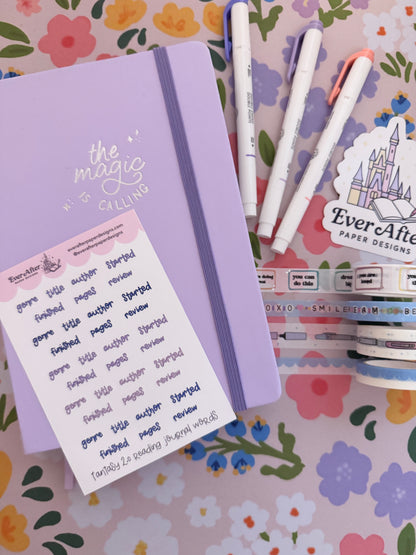 the
magic
is
CALLING
EverAfter
PAPER DESIGNS
EverAfter
everafterpaperdesigns.com
@everafterpaperdesigns
genre title author started
finished pages review
genre title author started
finished pages review
genre title author started
finished pages review
genre title author started
finished pages review
genre title author started
finished pages review
Fantasy 2.0 Reading Journal Words
you can
do this
SMILE